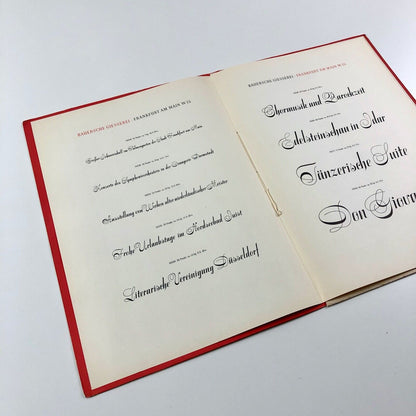 BAUERSCHE GIESSEREI · FRANKFURT AM MAIN W 13
Großer Lebensball im Palmengarten der Stadt Frankfurt am Main
Konzerte des Symphonieorchesters in der Orangerie Darmstadt
Ausstellung von Werken alter niederländischer Meister
Frohe Urlaubstage im Nordseebad Juist
Literarische Vereinigung Düsseldorf
BAUERSCHE GIESSEREI · FRANKFURT AM MAIN W 13
Chormusik und Barockzeit
Edelsteinschau in Idar
Tänzerische Suite
Don Giova